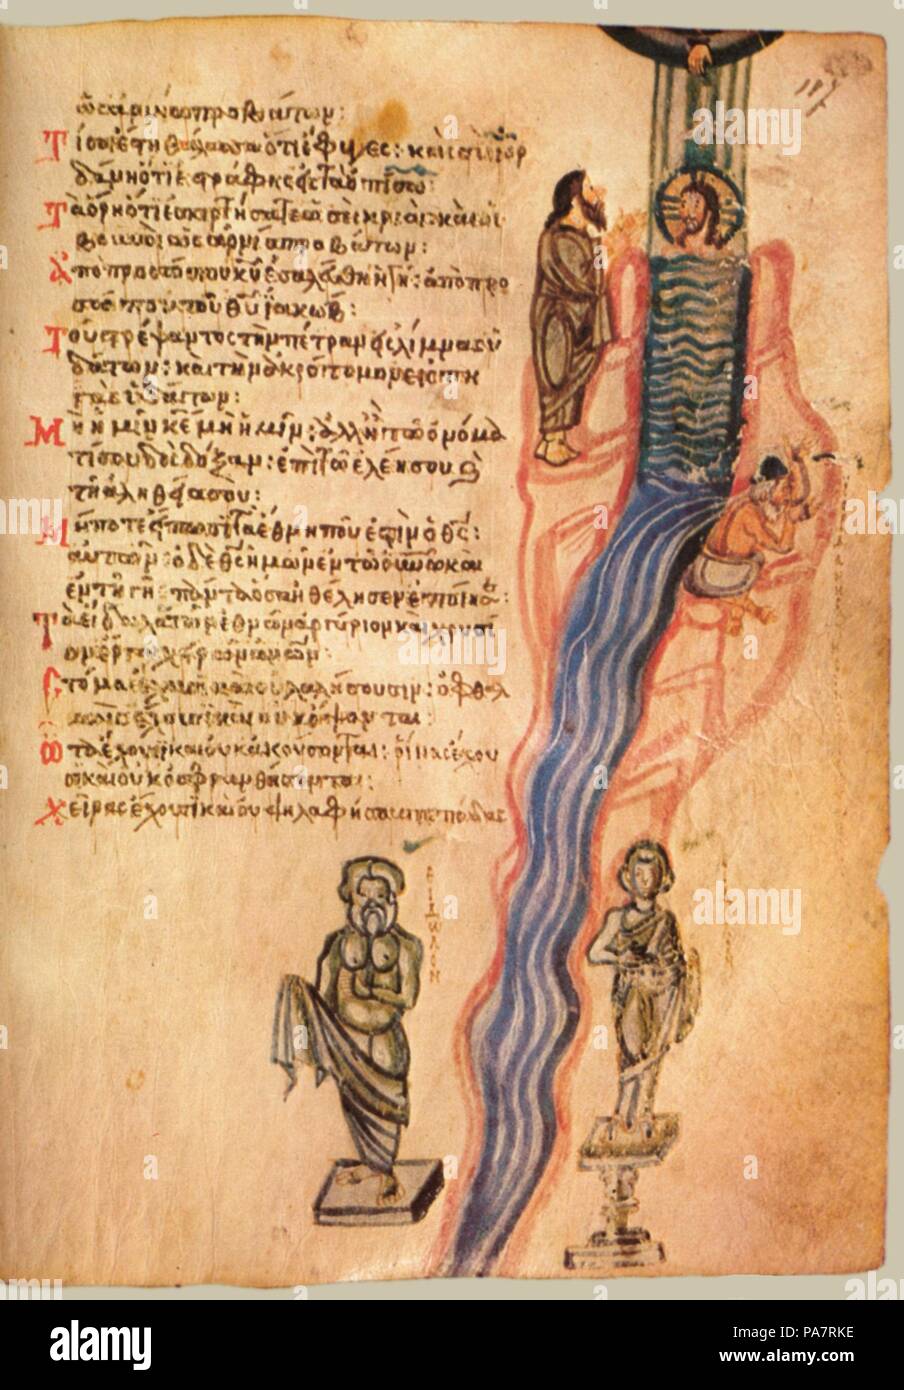 ὡς ἀρνία προβάτων:
Τί σοι ἐστὶ θάλασσα ὅτι ἔφυγες: καὶ σὺ ἰορ
δάνη ὅτι ἐστράφης εἰς τὰ ὀπίσω:
Τὰ ὄρη ὅτι ἐσκιρτήσατε ὡσεὶ κριοὶ· καὶ οἱ
βουνοὶ ὡς ἀρνία προβάτων:
Ἀπὸ προσώπου κυ ἐσαλεύθη ἡ γῆ: ἀπὸ προ
σώπου τοῦ θυ ἰακώβ:
Τοῦ στρέψαντος τὴν πέτραν εἰς λίμνας ὑ
δάτων: καὶ τὴν ἀκρότομον εἰς πη
γὰς ὑδάτων:
Μὴ ἡμῖν κε μὴ ἡμῖν: ἀλλ' ἢ τῷ ὀνόμα
τί σου δὸς δόξαν: ἐπὶ τῷ ἐλέει σου ϗ
τῇ ἀληθείᾳ σου:
Μήποτε εἴπωσι τὰ ἔθνη ποῦ ἐστιν ὁ θς:
αὐτῶν: ὁ δὲ θς ἡμῶν ἐν τῷ οὐνῷ καὶ
ἐν τῇ γῇ: πάντα ὅσα ἠθέλησεν ἐποίησε:
Τὰ εἴδωλα τῶν ἐθνῶν ἀργύριον καὶ χρυσί
ον ἔργα χειρῶν ἀνων:
Στόμα ἔχουσι καὶ οὐ λαλήσουσιν: ὀφθαλ
μοὺς ἔχουσι καὶ οὐκ ὄψονται:
Ὦτα ἔχουσι καὶ οὐκ ἀκούσονται: ῥῖνας ἔχου
σι καὶ οὐκ ὀσφρανθήσονται:
Χεῖρας ἔχουσι καὶ οὐ ψηλαφήσουσιν: πόδας
ΕΙΔΩΛΟΝ
alamy
Image ID: PA7RKE
www.alamy.com